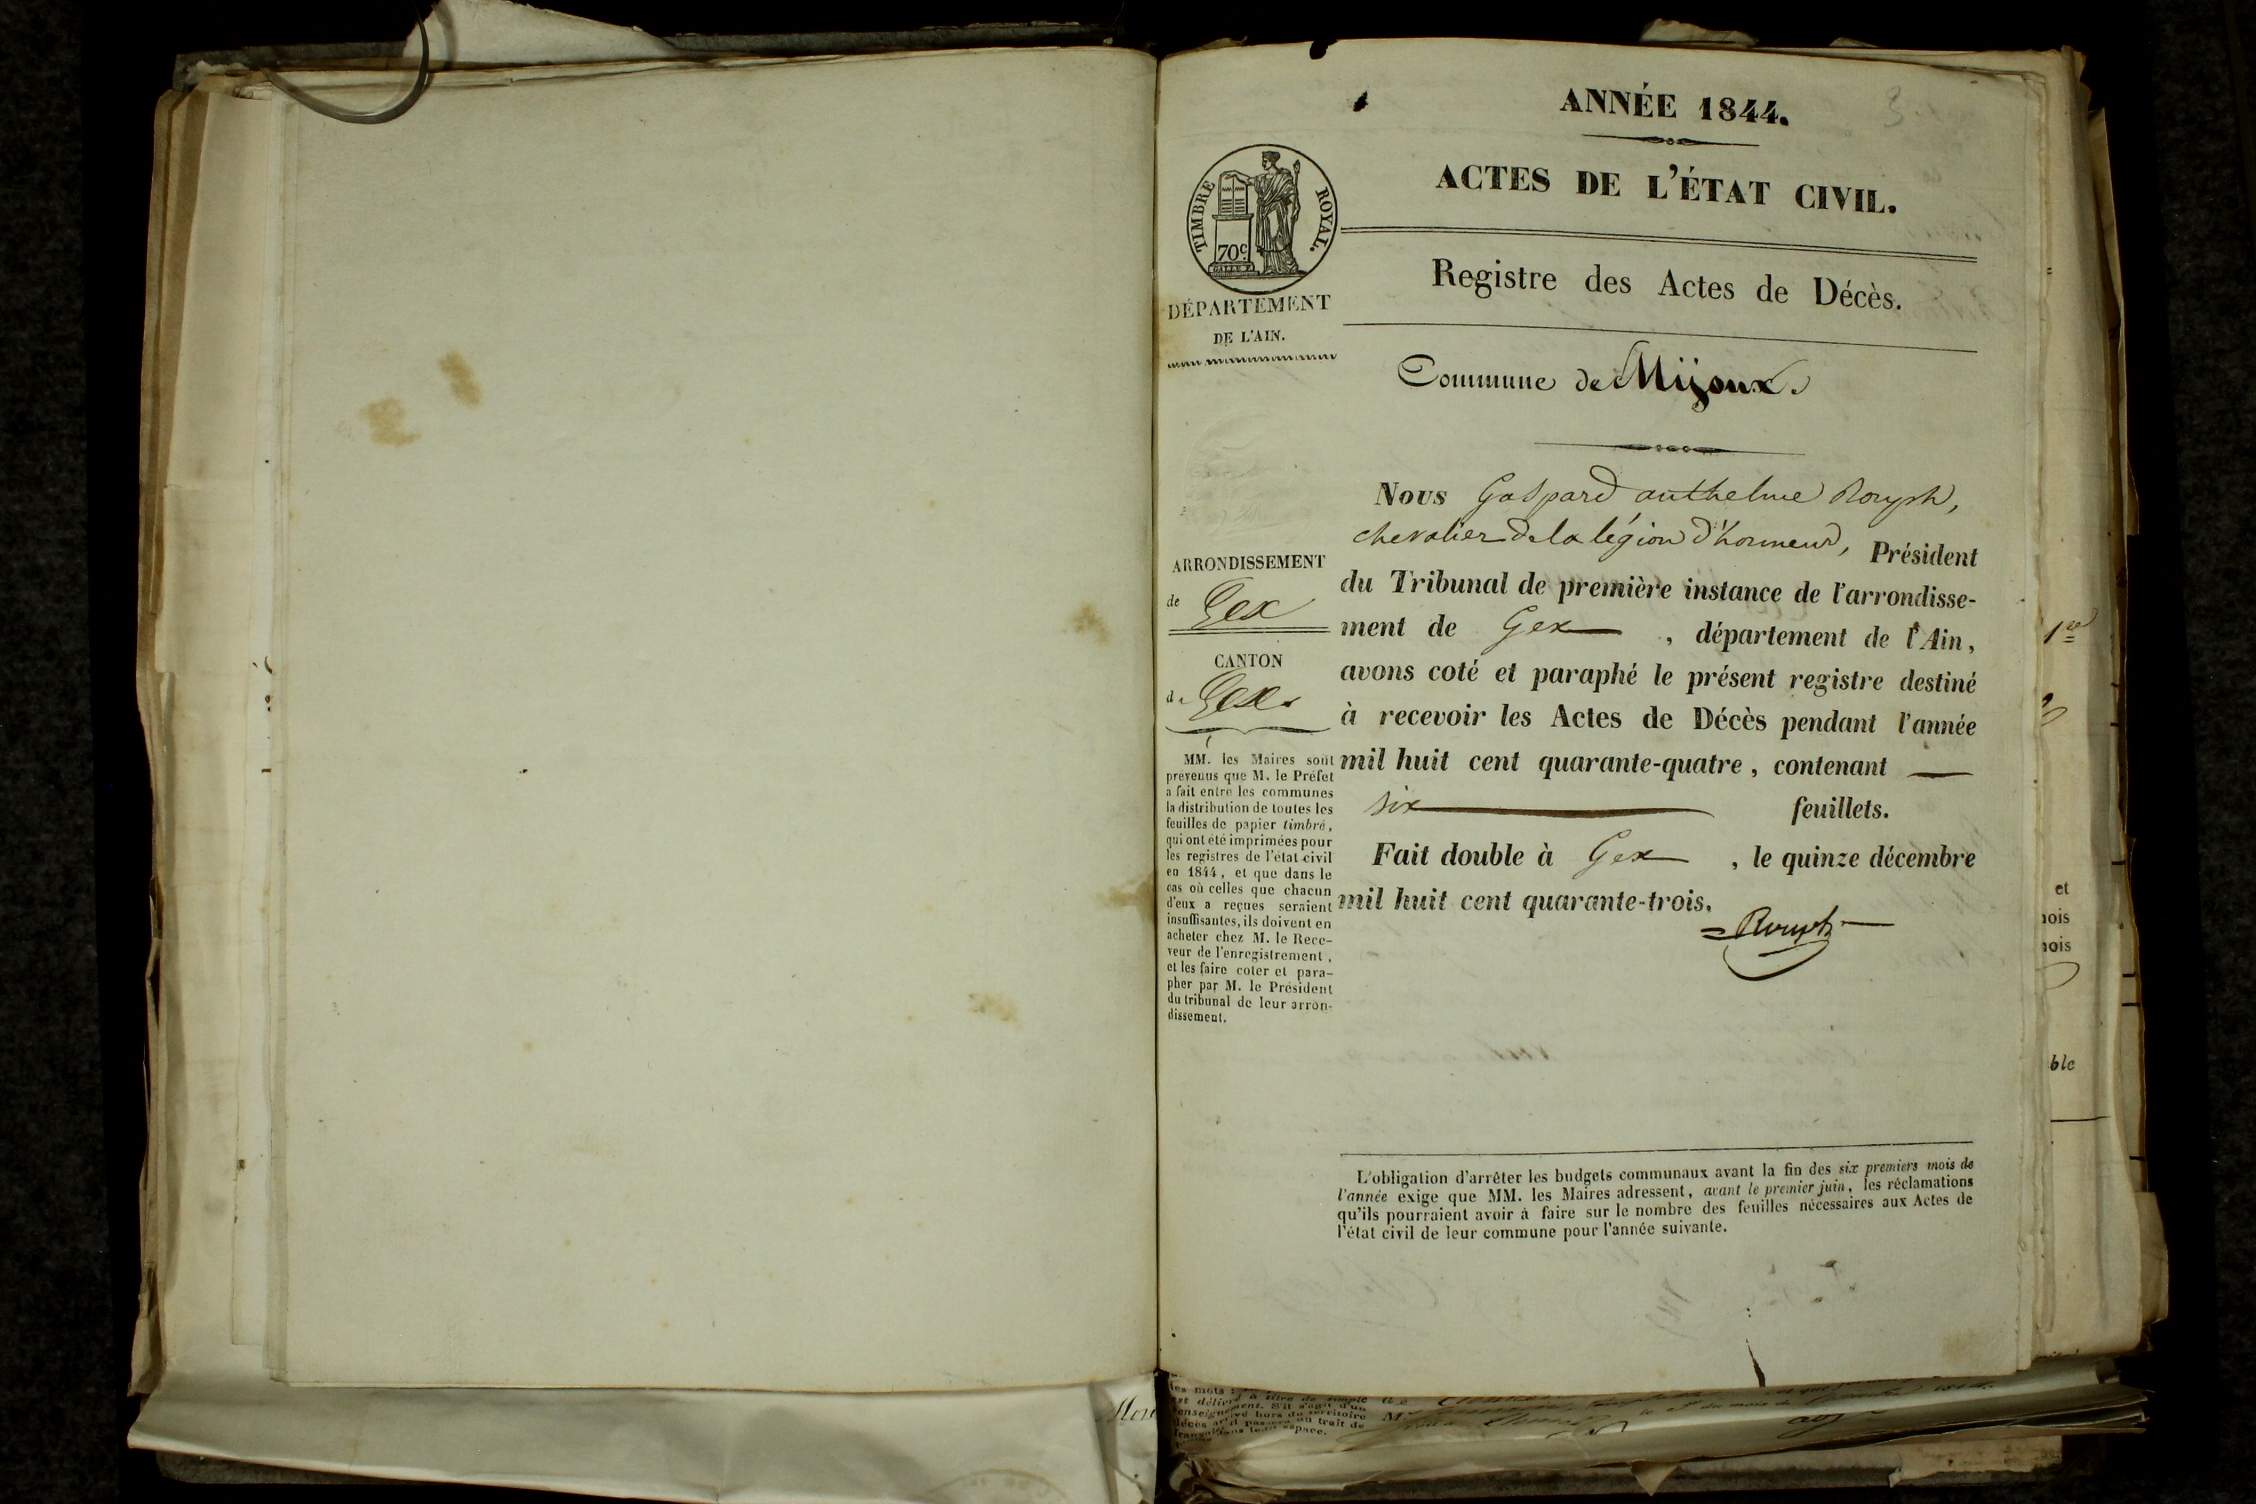 ANNÉE 1844.
ACTES DE L'ÉTAT CIVIL.
TIMBRE ROYAL.
70c
DÉPARTEMENT
DE L'AIN.
Registre des Actes de Décès.
Commune de Mijoux.
ARRONDISSEMENT
de Gex
CANTON
de Gex.
MM. les Maires sont
prévenus que M. le Préfet
a fait entre les communes
la distribution de toutes les
feuilles de papier timbré,
qui ont été imprimées pour
les registres de l'état civil
en 1844, et que dans le
cas où celles que chacun
d'eux a reçues seraient
insuffisantes, ils doivent en
acheter chez M. le Rece-
veur de l'enregistrement,
et les faire coter et para-
pher par M. le Président
du tribunal de leur arron-
dissement.
Nous Gaspard anthelme Rouph,
chevalier de la légion d'honneur, Président
du Tribunal de première instance de l'arrondisse-
ment de Gex, département de l'Ain,
avons coté et paraphé le présent registre destiné
à recevoir les Actes de Décès pendant l'année
mil huit cent quarante-quatre, contenant
six feuillets.
Fait double à Gex, le quinze décembre
mil huit cent quarante-trois.
L'obligation d'arrêter les budgets communaux avant la fin des six premiers mois de
l'année exige que MM. les Maires adressent, avant le premier juin, les réclamations
qu'ils pourraient avoir à faire sur le nombre des feuilles nécessaires aux Actes de
l'état civil de leur commune pour l'année suivante.